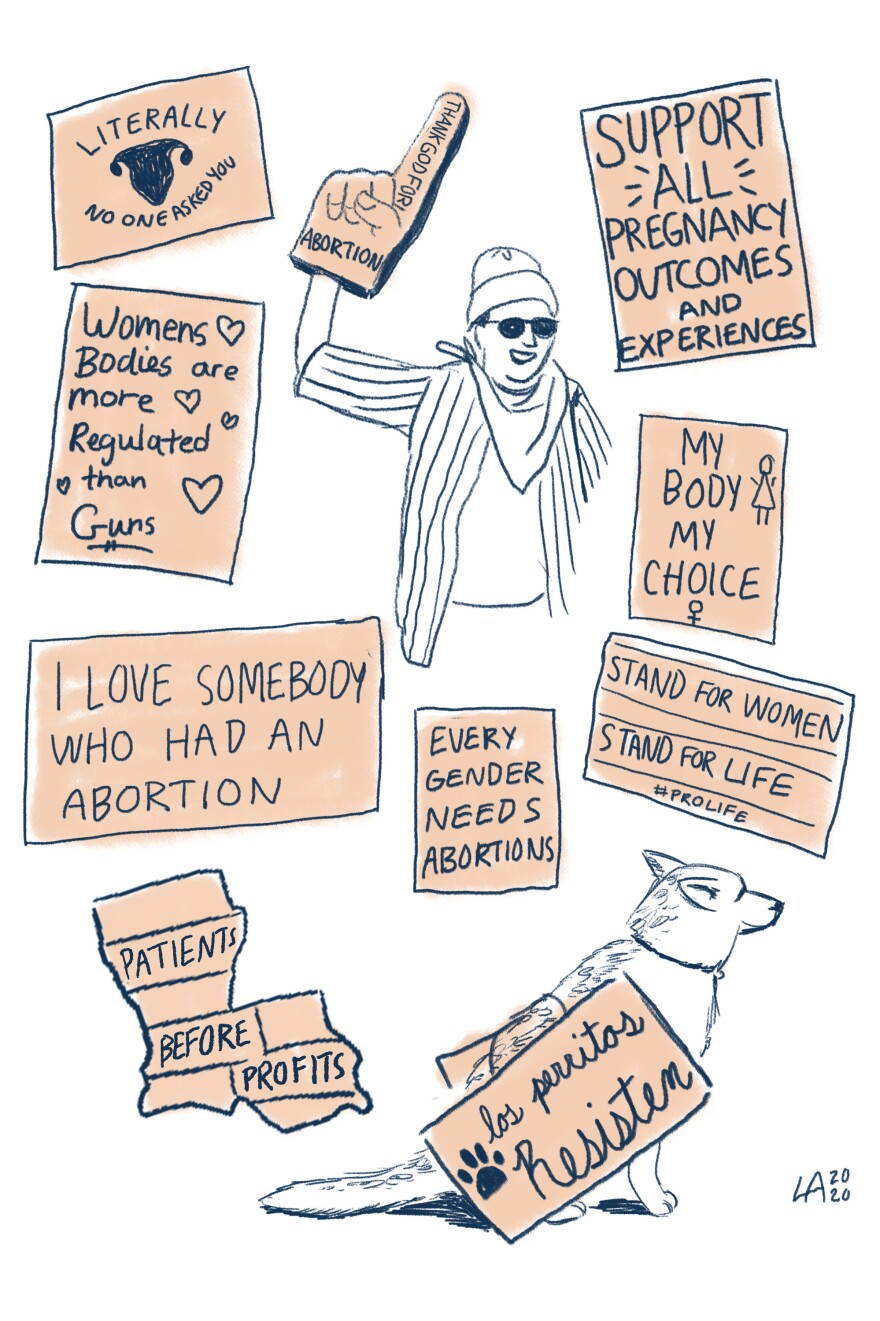 LITERALLY
NO ONE ASKED YOU
THANK GOD FOR
ABORTION
SUPPORT
ALL
PREGNANCY
OUTCOMES
AND
EXPERIENCES
Womens
Bodies are
more
Regulated
than
Guns
MY
BODY
MY
CHOICE
I LOVE SOMEBODY
WHO HAD AN
ABORTION
EVERY
GENDER
NEEDS
ABORTIONS
STAND FOR WOMEN
STAND FOR LIFE
#PROLIFE
PATIENTS
BEFORE
PROFITS
los perritos
Resisten
LA 20
20